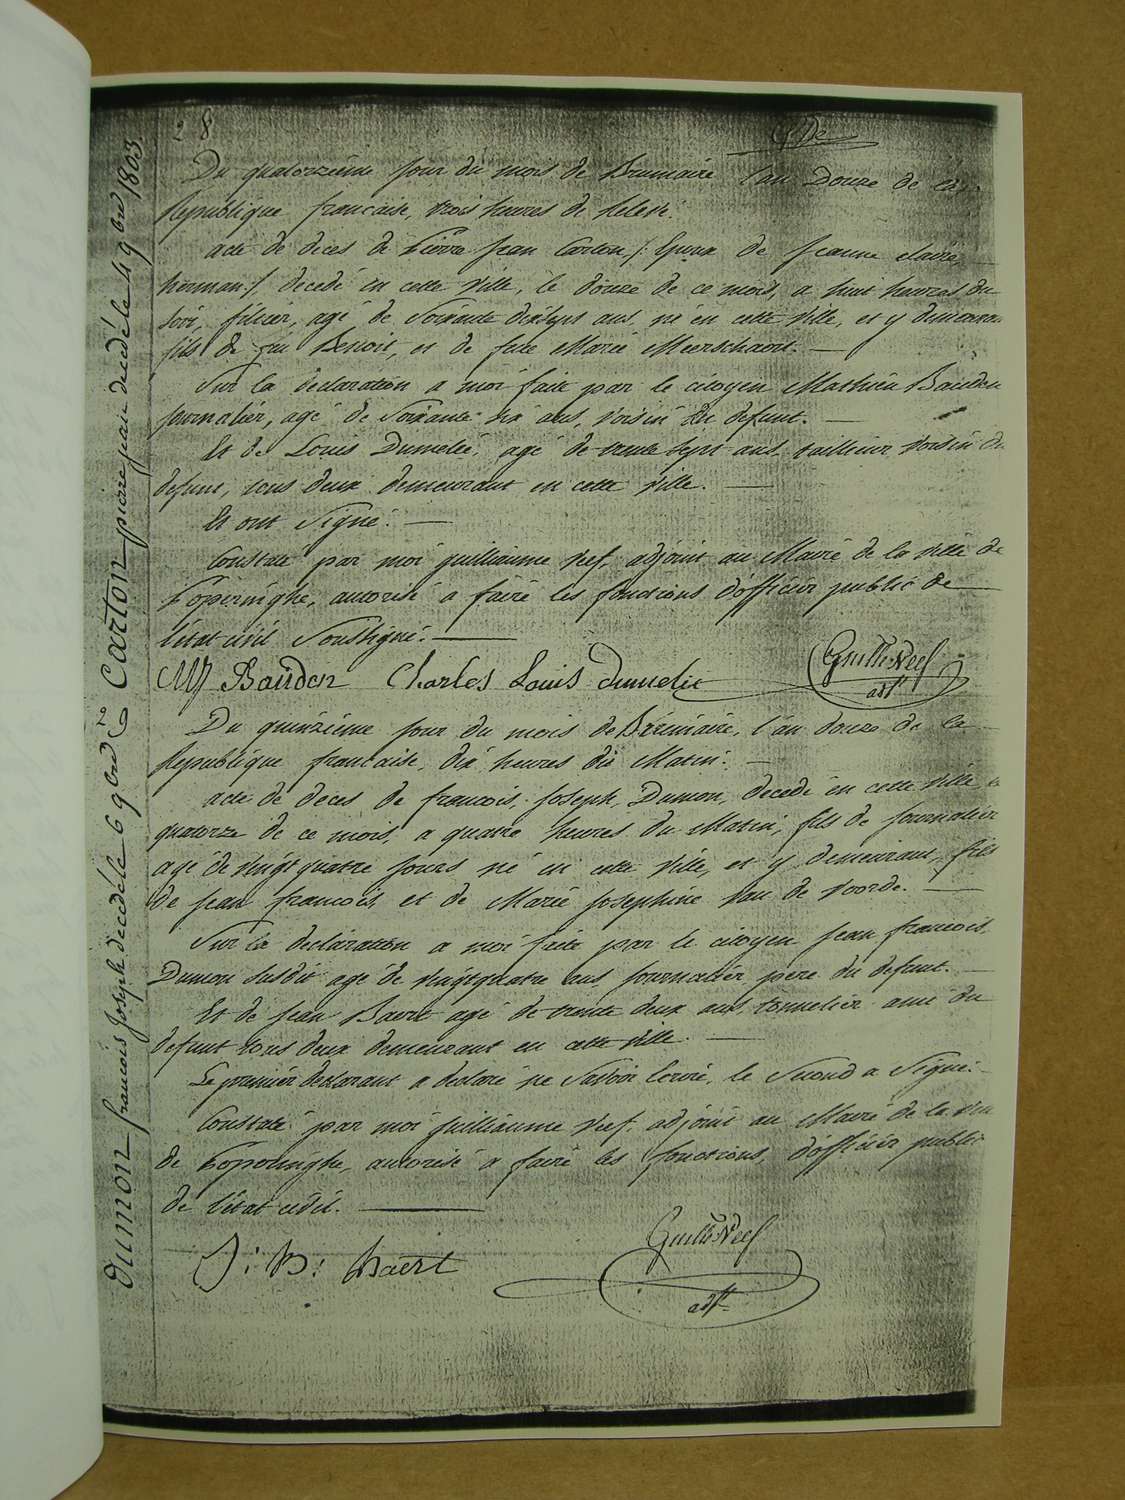 2 8
Du quatorzième jour du mois de Brumaire l'an Douze de la
Republique francaise, trois heures de
acte de deces de Pierre Jean Carton /: Epoux de Jeanne Claire
:/ decedé en cette ville, le douze de ce mois, a huit heures du
soir, filtier, agé de Soixante dix sept ans, né en cette ville, et y demeurant
fils de feu Benoit, et de feue Marie Meerschaert.
Sur la declaration a moi faite par le citoyen Mathieu Baudon
journalier, agé de Soixante dix ans, voisin du defunt.
Et de Louis Dumelie, agé de trente sept ans, tailleur, voisin du
defunt, tous deux demeurant en cette ville.
Et ont Signé.
Constaté par moi guilliaume Neef, adjoint au Maire de la ville de
Poperinghe, autorisé a faire les fonctions d'officier public de
l'état civil Soussigné.
M Baudon Charles Louis dumelie Guill Neef
adjt
Du quinzième jour du mois de Brumaire, l'an douze de la
Republique francaise, dix heures du Matin.
acte de deces de francois, Joseph, Dumon, decedé en cette ville le
quatorze de ce mois, a quatre heures du Matin, fils de journalier
agé de vingt quatre jours né en cette ville, et y demeurant, fils
de jean francois, et de Marie Josephine van de voorde.
Sur la declaration a moi faite par le citoyen jean francois,
Dumon susdit agé de vingtquatre ans, journalier père du defunt.
Et de jean Baert agé de trente deux ans, tonnelier ami du
defunt tous deux demeurant en cette ville.
Le premier declarant a declaré ne Savoir Ecrire, le Second a Signé.
Constaté par moi guilliaume Neef, adjoint au Maire de la ville
de Poperinghe, autorisé a faire les fonctions, d'officier public
de l'état civil.
J: B: Baert Guill Neef
adjt
Carton piere jean decedé le 4 9bre 1803.
2
dumon francois Joseph decedé le 6 9bre